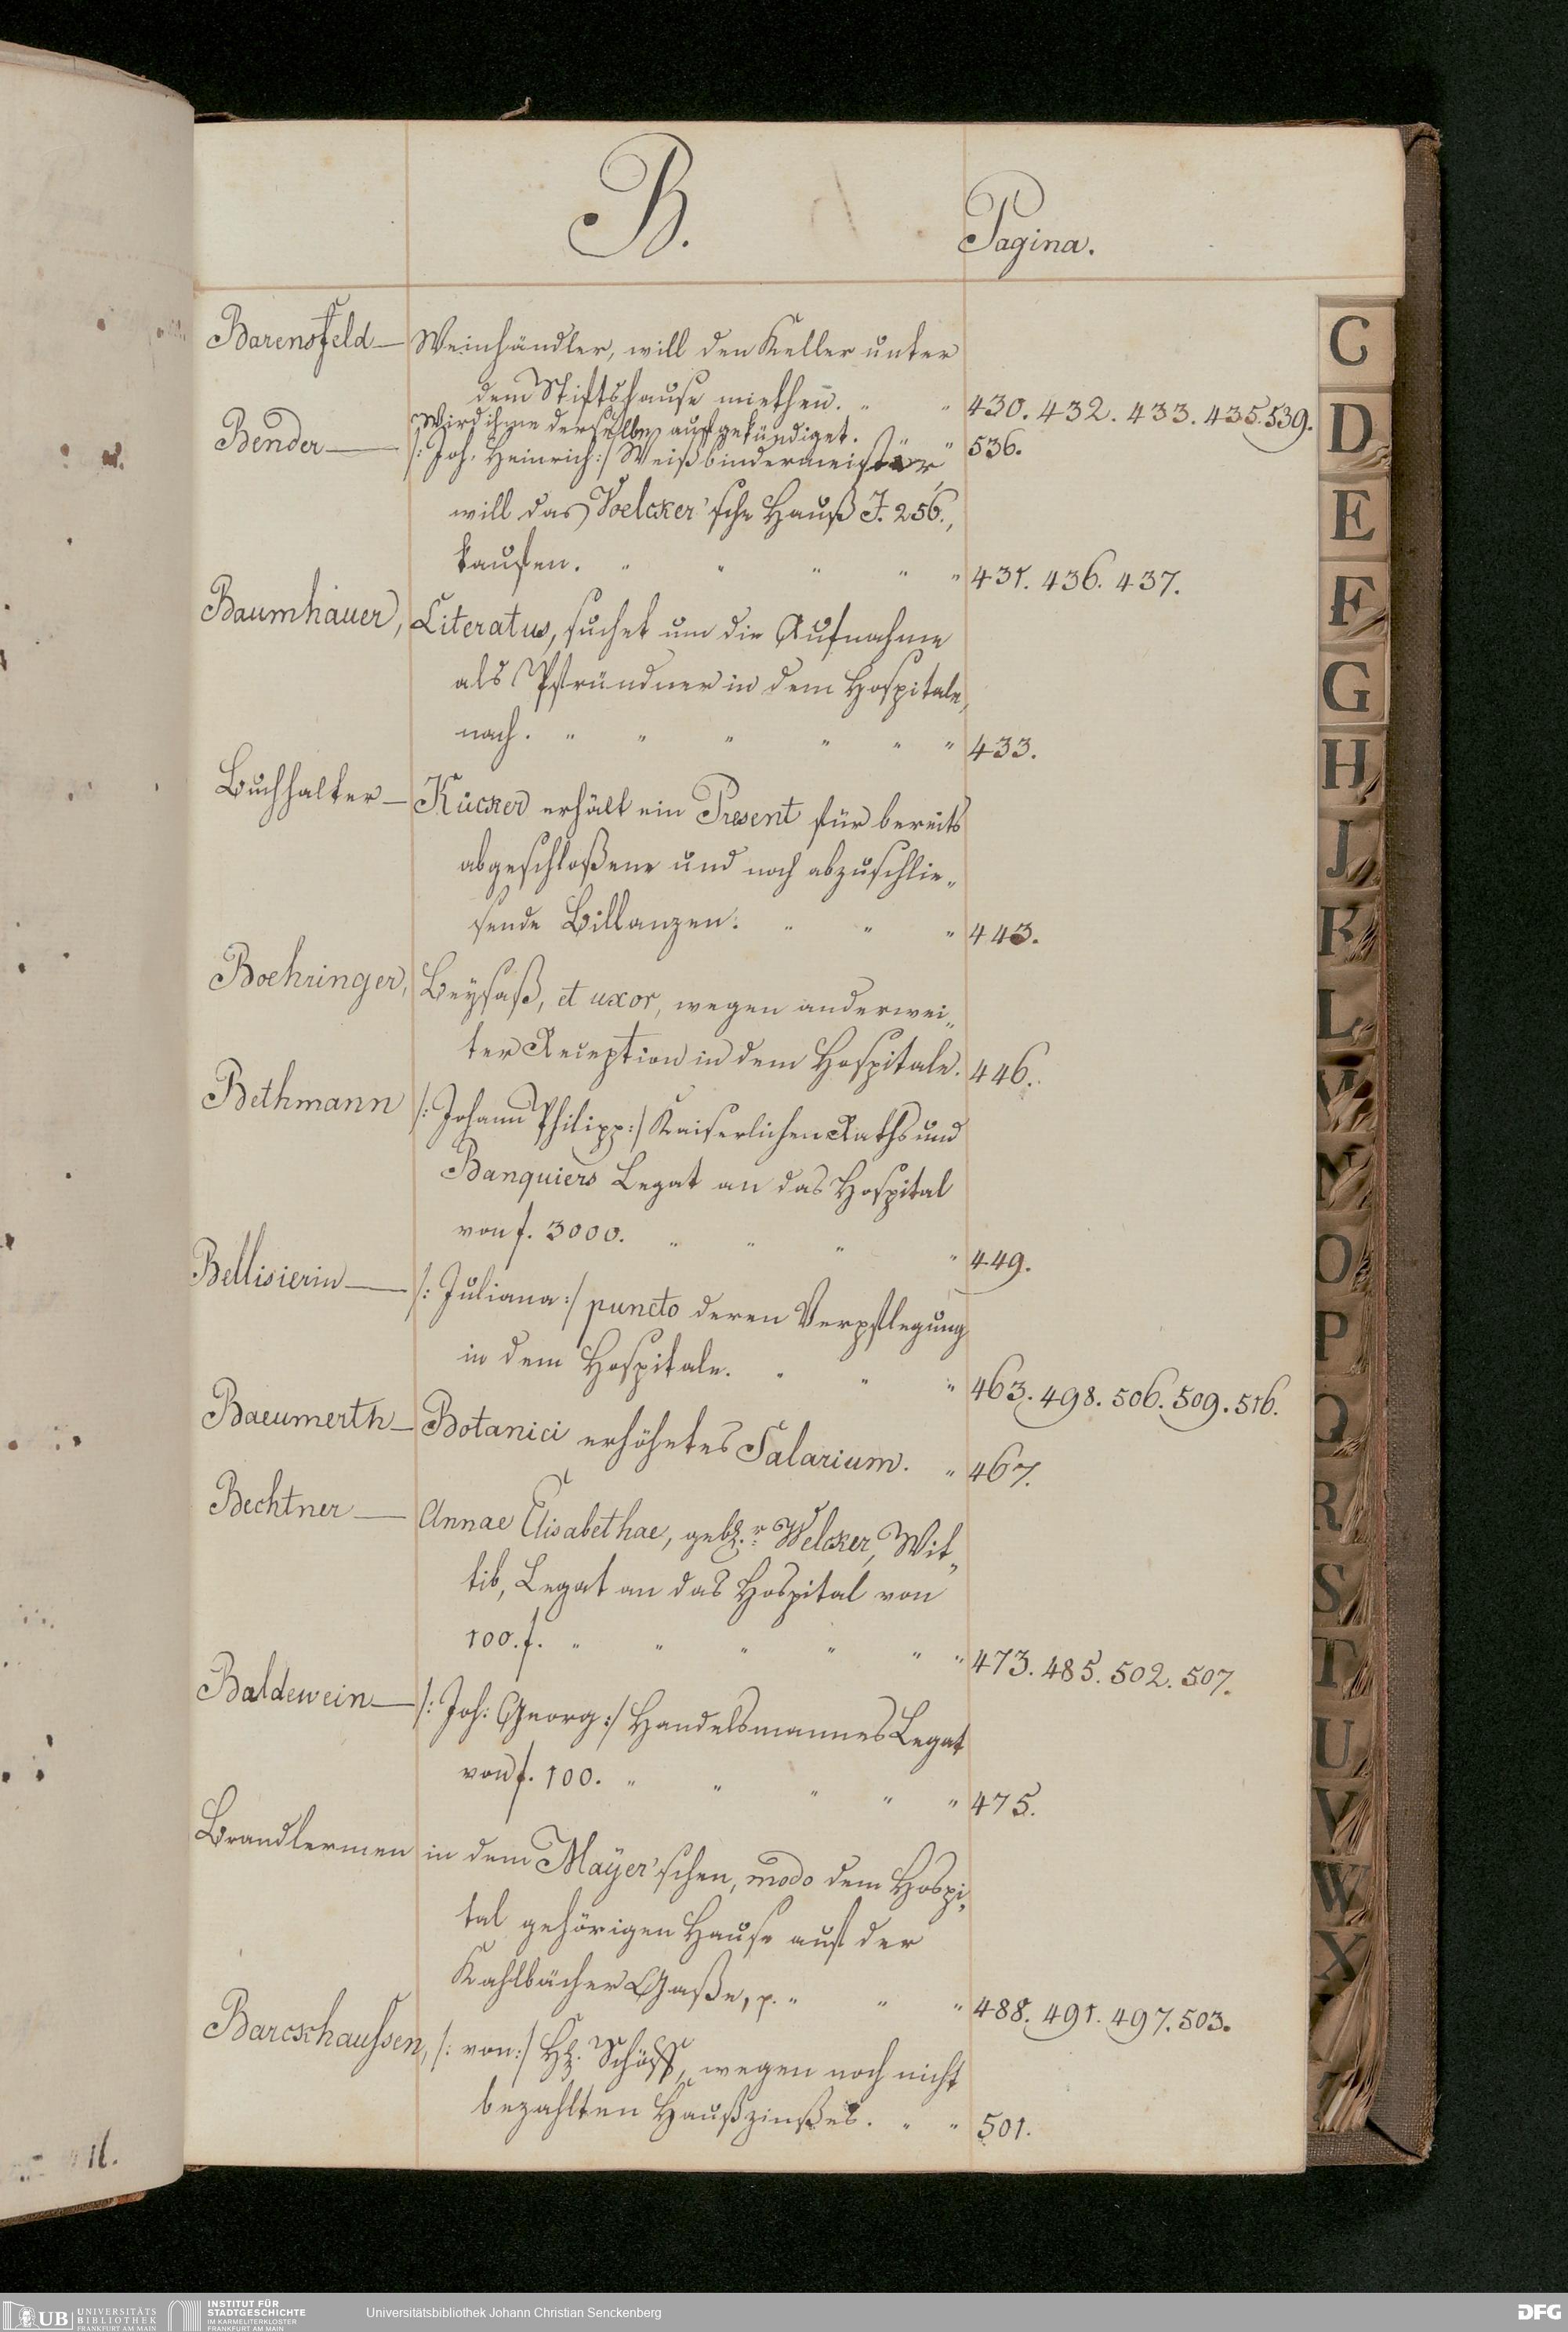 B.
Pagina.
Barensfeld — Weinhändler, will den Keller unter
dem Stiftshause miethen. " " 430. 432. 433. 435. 539.
Wird ihme derselbe aufgekündiget. " " 536.
Bender — /: Joh. Heinrich :/ Weißbindermeister,
will das Voelcker'sche Hauß J. 256.,
kaufen. " " " " " 431. 436. 437.
Baumhauer, Literatus, suchet um die Aufnahme
als Pfründner in dem Hospitale,
nach. " " " " " " 433.
Buchhalter — Kücker erhält ein Present für bereits
abgeschloßene und noch abzuschlie„
sende Billanzen. " " " 443.
Boehringer, Beysaß, et uxor, wegen anderwei„
ter Reception in dem Hospitale. 446.
Bethmann /: Johann Philipp :/ Kaiserlichen Raths und
Banquiers Legat an das Hospital
von f. 3000. " " " " 449.
Bellisierin — /: Juliana :/ puncto deren Verpflegung
in dem Hospitale. " " " 463. 498. 506. 509. 516.
Baeumerth — Botanici erhöhetes Salarium. " 467.
Bechtner — Annae Elisabethae, Welcker, Wit„
tib, Legat an das Hospital von
100. f. " " " " " " 473. 485. 502. 507.
Baldewein — /: Joh: Georg :/ Handelsmannes Legat
von f. 100. " " " " " 475.
Brandlermen in dem Mayer'schen, modo dem Hospi„
tal gehörigen Hause auf der
Kahlbächer Gaße, p. " " " 488. 491. 497. 503.
Barckhaussen, /: von :/ Hr. Schöff, wegen noch nicht
bezahlten Haußzinßes. " " 501.
C
D
E
F
G
H
J
K
L
M
N
O
P
Q
R
S
T
U
V
W
X
UB UNIVERSITÄTS
BIBLIOTHEK
FRANKFURT AM MAIN
INSTITUT FÜR
STADTGESCHICHTE
IM KARMELITERKLOSTER
FRANKFURT AM MAIN
Universitätsbibliothek Johann Christian Senckenberg
DFG